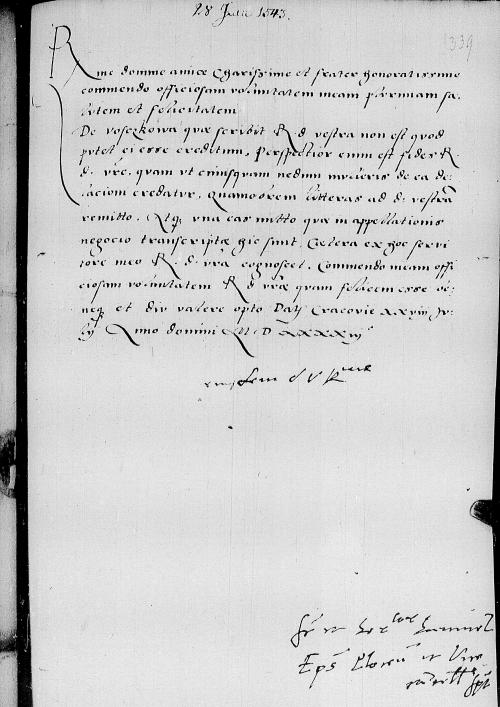 28 Julii 1543.
339
Rme domine amice Charissime et frater honoratissime
commendo officiosam voluntatem meam plurimam sa-
lutem et felicitatem
De quae scribit R d vestra non est quod
putet ei esse creditum, Perspectior enim est fides R
d. vre, quam ut cuiusquam nedum mulieris de ea de-
lacioni credatur. Quamobrem litteras ad d. vestra
remitto, Atq una eas mitto quae in appellationis
negocio transcriptae hic sunt. Caetera ex hoc servi
tore meo R. d. vra cognoscet. Commendo meam offi
ciosam voluntatem R d vrae quam felicem esse
et diu valere opto Dat Cracovie xxviii Ju-
lij Anno domini M D xxxxiij
eiusdem d v R
fr et Samuel
Eps et Vice